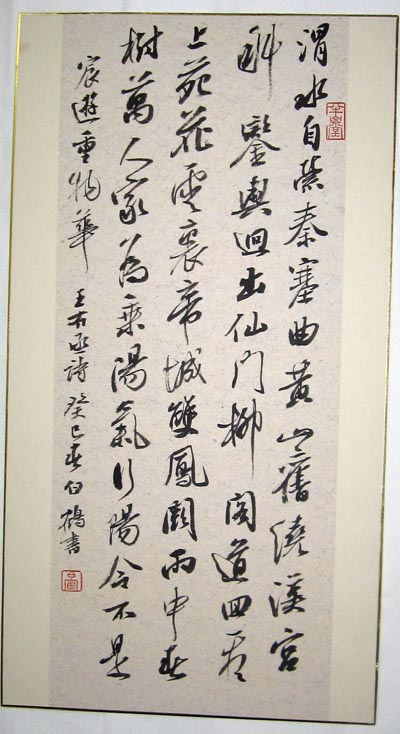 渭水自縈秦塞曲黃山舊繞漢宮
斜鑾輿迴出仙門柳閣道回看
上苑花雲裏帝城雙鳳闕雨中春
樹萬人家為乘陽氣行陽令不是
宸遊重物華 王右丞詩 癸巳春白鶴書